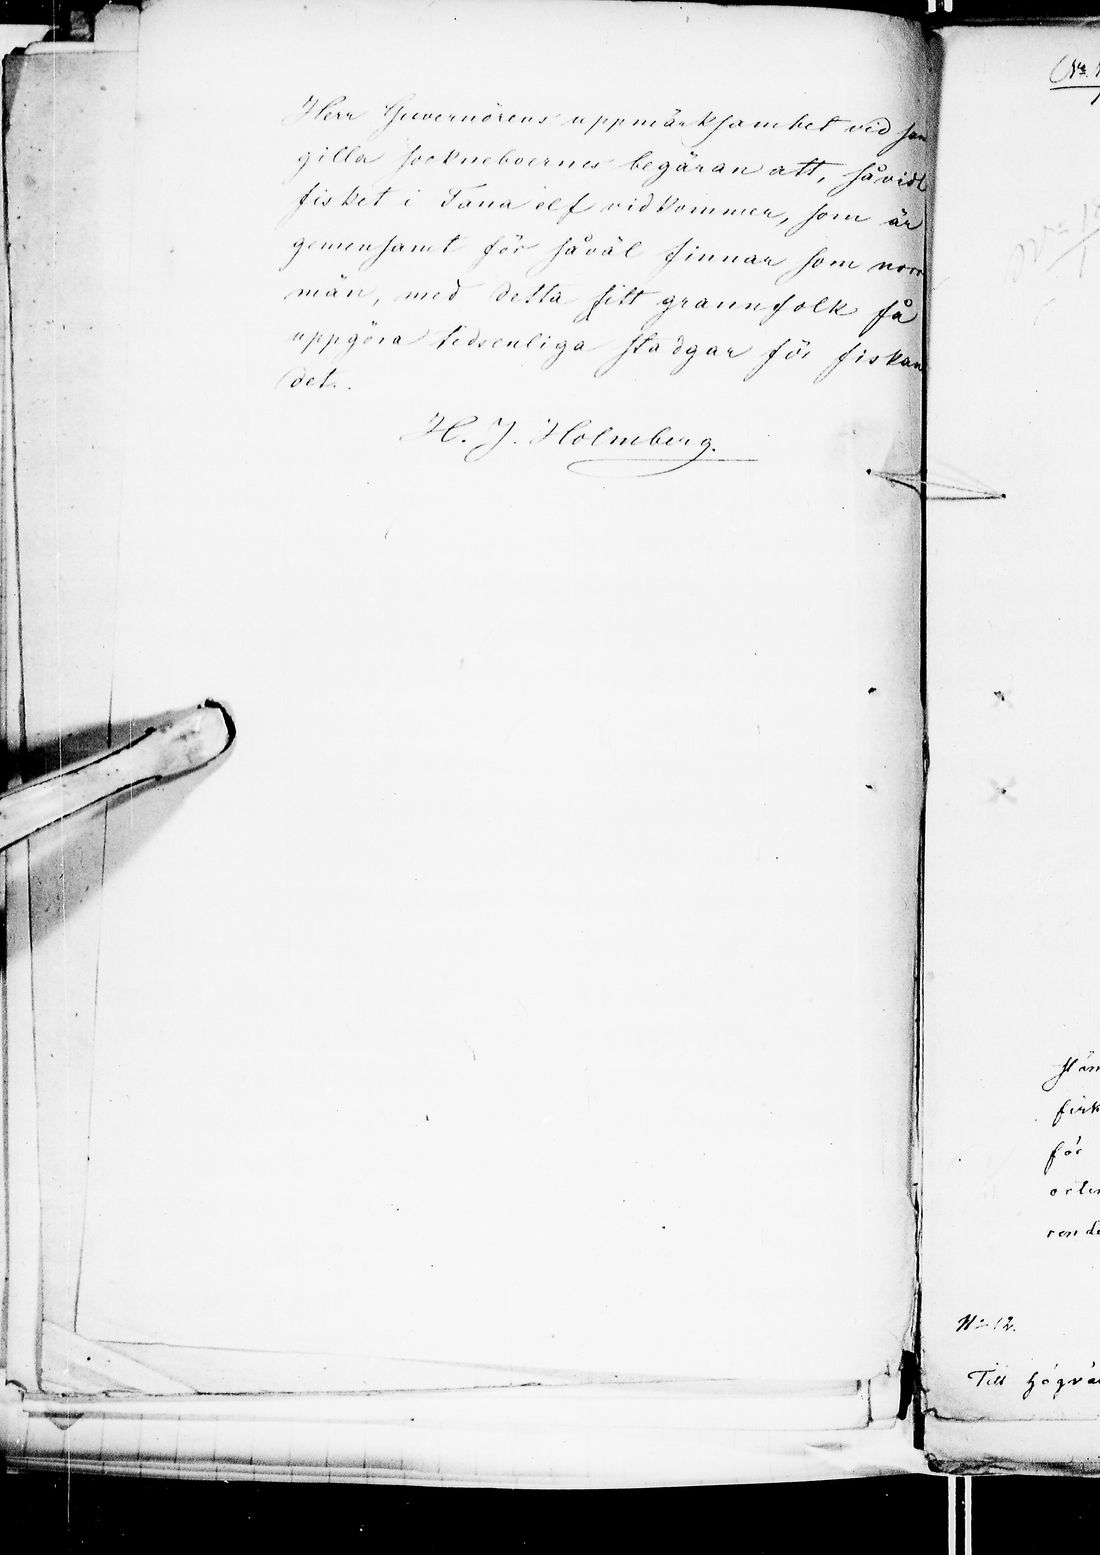 Herr Guvernörens uppmärksamhet vid san
gilla sockneboernes begäran att, såvidt
fisket i Tana elf vidkommer, som är
gemensamt för såväl finnar som norr
män, med detta sitt grannfolk få
uppgöra tidsenliga stadgar för fiskan
det.
H. J. Holmberg.
för
No 12.
Till Högvä